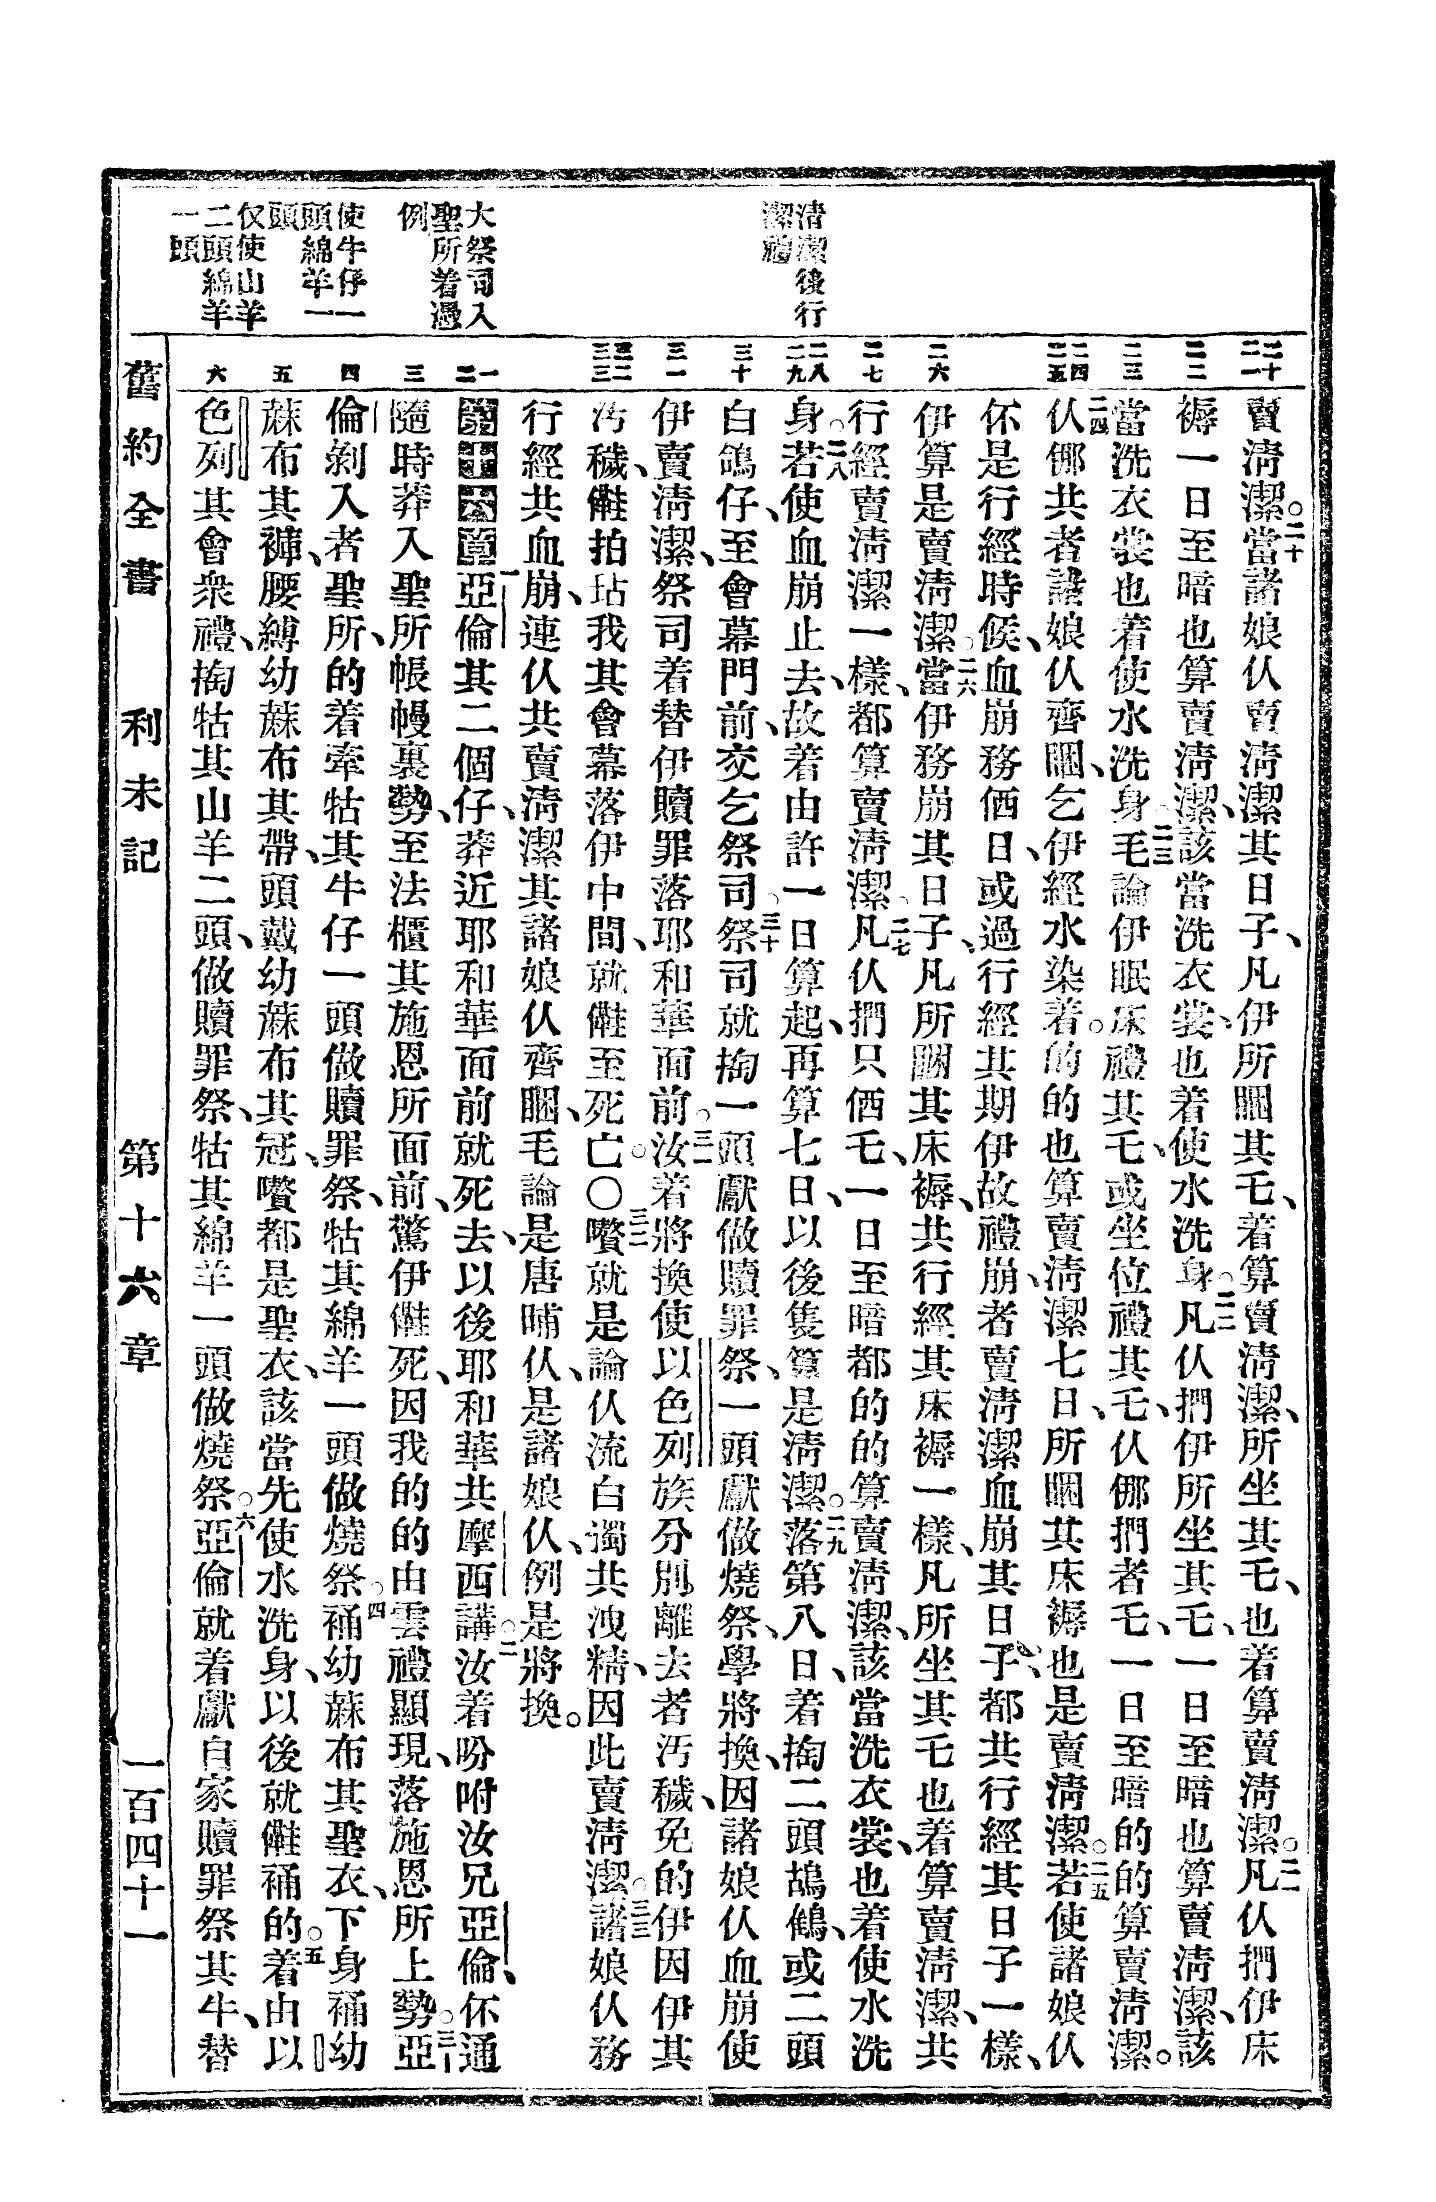 清潔後行
潔禮
大祭司入
聖所着憑
例
使牛仔一
頭綿羊一
頭
仅使山羊
二頭綿羊
一頭
二十
二一
二二
二三
二四
二五
二六
二七
二八
二九
三十
三一
三二
三三
一
二
三
四
五
六
賣清潔。二十當諸娘仈賣清潔其日子、凡伊所睏其乇、着算賣清潔、所坐其乇、也着算賣清潔。二一凡仈捫伊床
褥一日至暗也算賣清潔、該當洗衣裳、也着使水洗身。二二凡仈捫伊所坐其乇、一日至暗也算賣清潔、該
當洗衣裳也着使水洗身。二三毛論伊眠床禮其乇、或坐位禮其乇、仈㑚捫者乇、一日至暗的的算賣清潔。
二四仈㑚共者諸娘仈齊睏、乞伊經水染着。的的也算賣清潔七日、所睏其床褥也是賣清潔。二五若使諸娘仈
伓是行經時候、血崩務㐰日、或過行經其期伊故禮崩、者賣清潔血崩其日子、都共行經其日子一樣、
伊算是賣清潔。二六當伊務崩其日子、凡所睏其床褥、共行經其床褥一樣、凡所坐其乇也着算賣清潔、共
行經賣清潔一樣、都算賣清潔。二七凡仈捫只㐰乇、一日至暗都的的算賣清潔、該當洗衣裳、也着使水洗
身。二八若使血崩止去、故着由許一日算起、再算七日、以後隻算是清潔。二九落第八日、着掏二頭鴣鶴、或二頭
白鴿仔、至會幕門前、交乞祭司。三十祭司就掏一頭獻做贖罪祭、一頭獻做燒祭、學將換、因諸娘仈血崩使
伊賣清潔、祭司着替伊贖罪落耶和華面前。三一汝着將換使以色列族分別離去者汚穢、免的伊因伊其
汚穢、㒕拍玷我其會幕落伊中間、就㒕至死亡。〇三二嚽就是論仈流白濁共洩精、因此賣清潔。三三諸娘仈務
行經共血崩、連仈共賣清潔其諸娘仈齊睏、毛論是唐晡仈、是諸娘仈、例是將換。
第十六章一亞倫其二個仔、莽近耶和華面前就死去、以後耶和華共摩西講。二汝着吩咐汝兄亞倫、伓通
隨時莽入聖所帳幔裏勢、至法櫃其施恩所面前、驚伊㒕死、因我的的由雲禮顯現、落施恩所上勢。三亞
倫剃入者聖所、的着牽牯其牛仔一頭做贖罪祭、牯其綿羊一頭做燒祭。四𧙕幼蔴布其聖衣、下身𧙕幼
蔴布其褲、腰縛幼蔴布其帶、頭戴幼蔴布其冠、嚽都是聖衣、該當先使水洗身、以後就㒕𧙕的。五着由以
色列其會衆禮、掏牯其山羊二頭、做贖罪祭、牯其綿羊一頭做燒祭。六亞倫就着獻自家贖罪祭其牛、替
舊約全書　利未記　第十六章　一百四十一